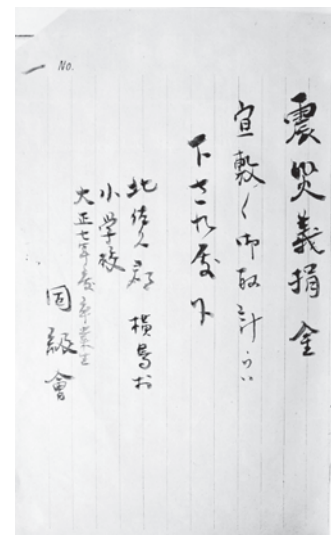 No.
震災義捐金
宜敷く御取計らい
下され度候
北佐久郡 横鳥村
小学校
大正七年度卒業生
同級會